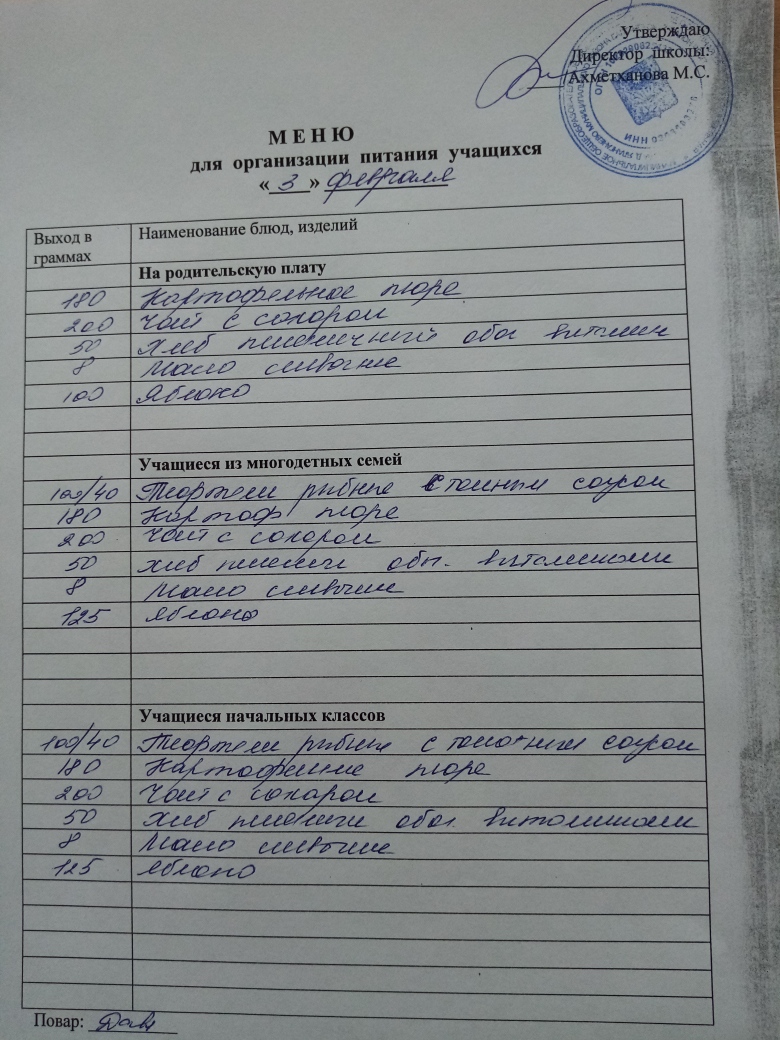 Утверждаю
Директор школы:
Ахметханова М.С.
М Е Н Ю
для организации питания учащихся
« 3 » февраля
Выход в граммах Наименование блюд, изделий
На родительскую плату
180 Картофельное пюре
200 Чай с сахаром
50 Хлеб пшеничный обог витамин
8 Масло сливочне
100 Яблоко
Учащиеся из многодетных семей
100/40 Тефтели рыбные с томным соусом
180 Картоф пюре
200 Чай с сахаром
50 Хлеб пшенич обог. витаминами
8 Масло сливочн
125 Яблоко
Учащиеся начальных классов
100/40 Тефтели рыбные с томатным соусом
180 Картофельне пюре
200 Чай с сахаром
50 Хлеб пшенич обог витаминами
8 Масло сливочн
125 Яблоко
Повар: